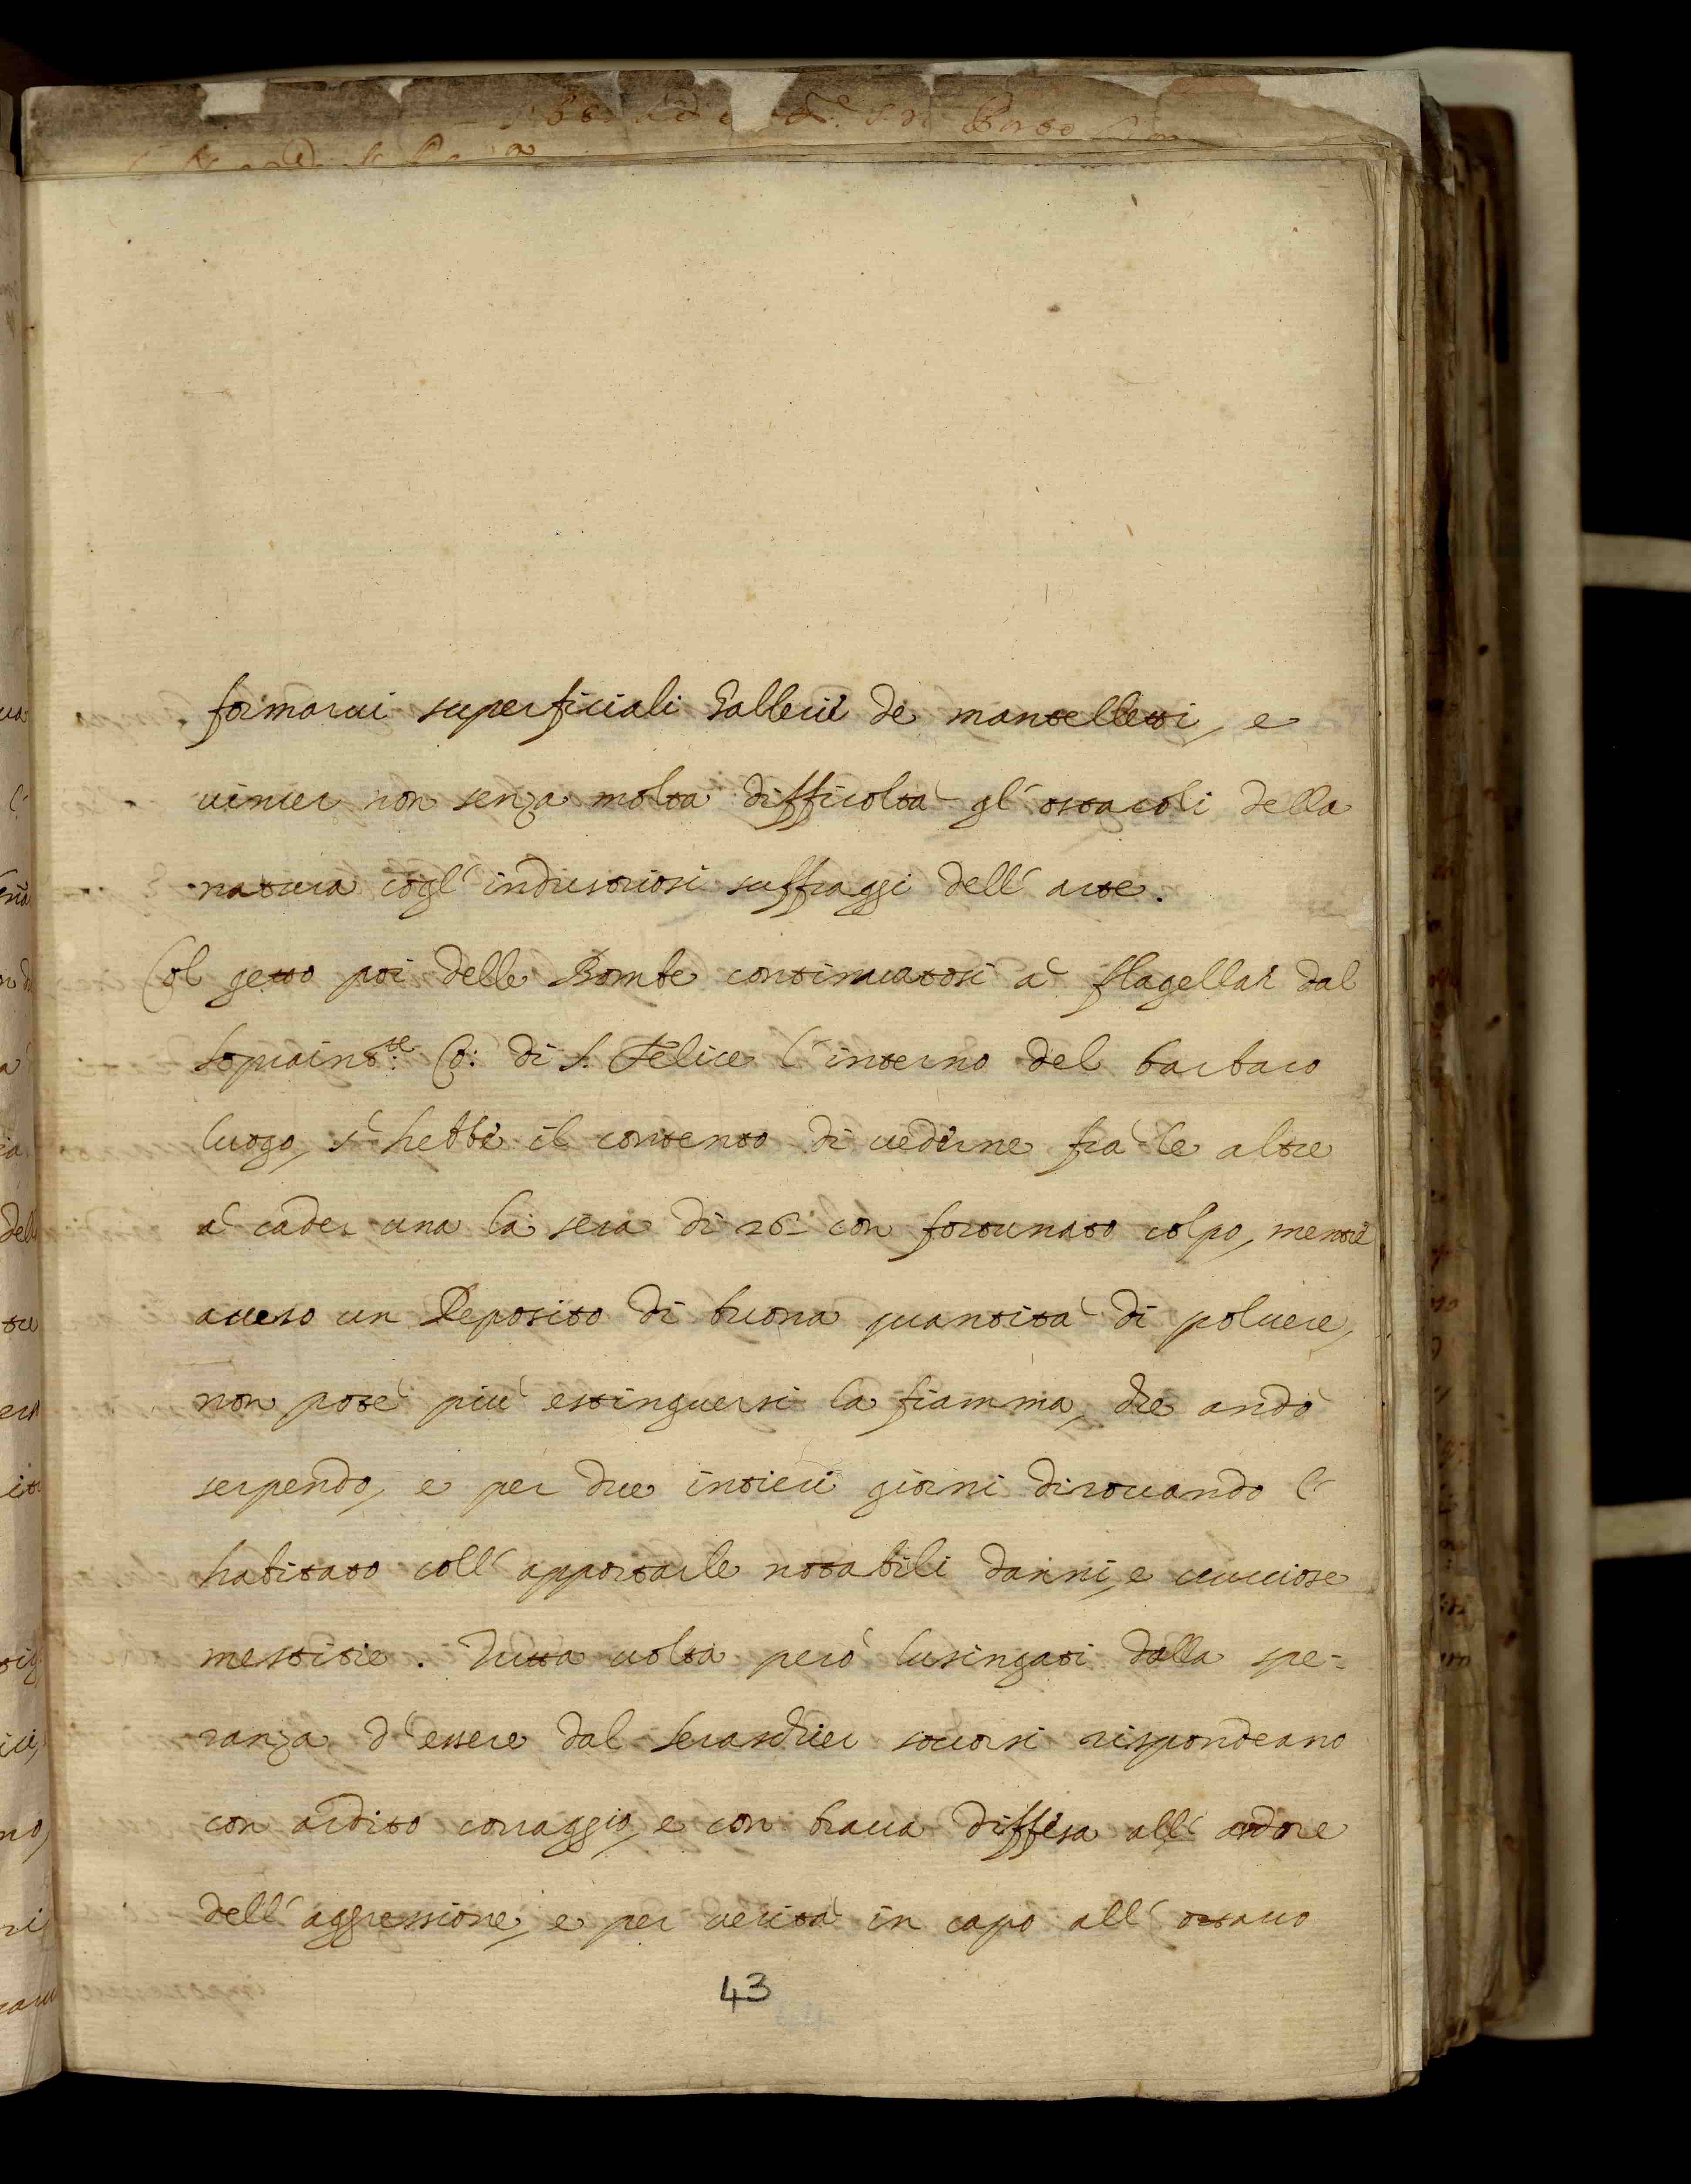 formarui superficiali Gallerie de mantelletti, e
uincer non senza molta difficoltà gl' ostacoli della
natura cogl' industriosi suffraggi dell' arte.
Col getto poi delle Bombe continuatosi à flagellar dal
sopraint.te Co: di S. Felice l' interno del barbaro
luogo, s' hebbe il contento di uederne frà le altre
à cader una la sera di 26 con fortunato colpo, mentre
acceso un Deposito di buona quantità di poluere,
non potè più estinguersi la fiamma, che andò
serpendo, e per due intieri giorni diroccando l'
habitato coll' apportarle notabili danni, e
mestitie. Tutta uolta però lusingati dalla spe-
ranza d' essere dal Seraschier soccorsi rispondeano
con ardito corraggio, e con braua diffesa all' ardore
dell' aggressione, e per uerità in capo all' ottauo
43